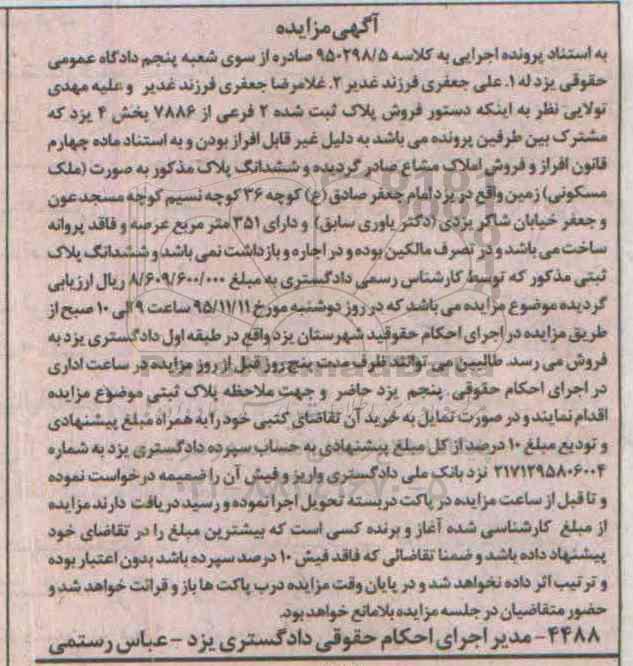 آگهی مزایده
به استناد پرونده اجرایی به کلاسه ۹۵۰۲۹۸/۵ صادره از سوی شعبه پنجم دادگاه عمومی
حقوقی یزد له ۱. علی جعفری فرزند غدیر ۲. غلامرضا جعفری فرزند غدیر و علیه مهدی
تولایی نظر به اینکه دستور فروش پلاک ثبت شده ۲ فرعی از ۷۸۸۶ بخش ۴ یزد که
مشترک بین طرفین پرونده می باشد به دلیل غیر قابل افراز بودن و به استناد ماده چهارم
قانون افراز و فروش املاک مشاع صادر گردیده و ششدانگ پلاک مذکور به صورت (ملک
مسکونی) زمین واقع در یزد امام جعفر صادق (ع) کوچه ۳۶ کوچه نسیم کوچه مسجد عون
و جعفر خیابان شاکر یزدی (دکتر یاوری سابق) و دارای ۳۵۱ متر مربع عرصه و فاقد پروانه
ساخت می باشد و در تصرف مالکین بوده و در اجاره و بازداشت نمی باشد و ششدانگ پلاک
ثبتی مذکور که توسط کارشناس رسمی دادگستری به مبلغ ۸/۶۰۹/۶۰۰/۰۰۰ ریال ارزیابی
گردیده موضوع مزایده می باشد که در روز دوشنبه مورخ ۹۵/۱۱/۱۱ ساعت ۹ الی ۱۰ صبح از
طریق مزایده در اجرای احکام حقوقید شهرستان یزد واقع در طبقه اول دادگستری یزد به
فروش می رسد. طالبین می توانند ظرف مدت پنج روز قبل از روز مزایده در ساعت اداری
در اجرای احکام حقوقی پنجم یزد حاضر و جهت ملاحظه پلاک ثبتی موضوع مزایده
اقدام نمایند و در صورت تمایل به خرید آن تقاضای کتبی خود را به همراه مبلغ پیشنهادی
و تودیع مبلغ ۱۰ درصد از کل مبلغ پیشنهادی به حساب سپرده دادگستری یزد به شماره
۲۱۷۱۲۹۵۸۰۶۰۰۴ نزد بانک ملی دادگستری واریز و فیش آن را ضمیمه درخواست نموده
و تا قبل از ساعت مزایده در پاکت دربسته تحویل اجرا نموده و رسید دریافت دارند مزایده
از مبلغ کارشناسی شده آغاز و برنده کسی است که بیشترین مبلغ را در تقاضای خود
پیشنهاد داده باشد و ضمنا تقاضائی که فاقد فیش ۱۰ درصد سپرده باشد بدون اعتبار بوده
و ترتیب اثر داده نخواهد شد و در پایان وقت مزایده درب پاکت ها باز و قرائت خواهد شد و
حضور متقاضیان در جلسه مزایده بلامانع خواهد بود.
۴۴۸۸- مدیر اجرای احکام حقوقی دادگستری یزد - عباس رستمی